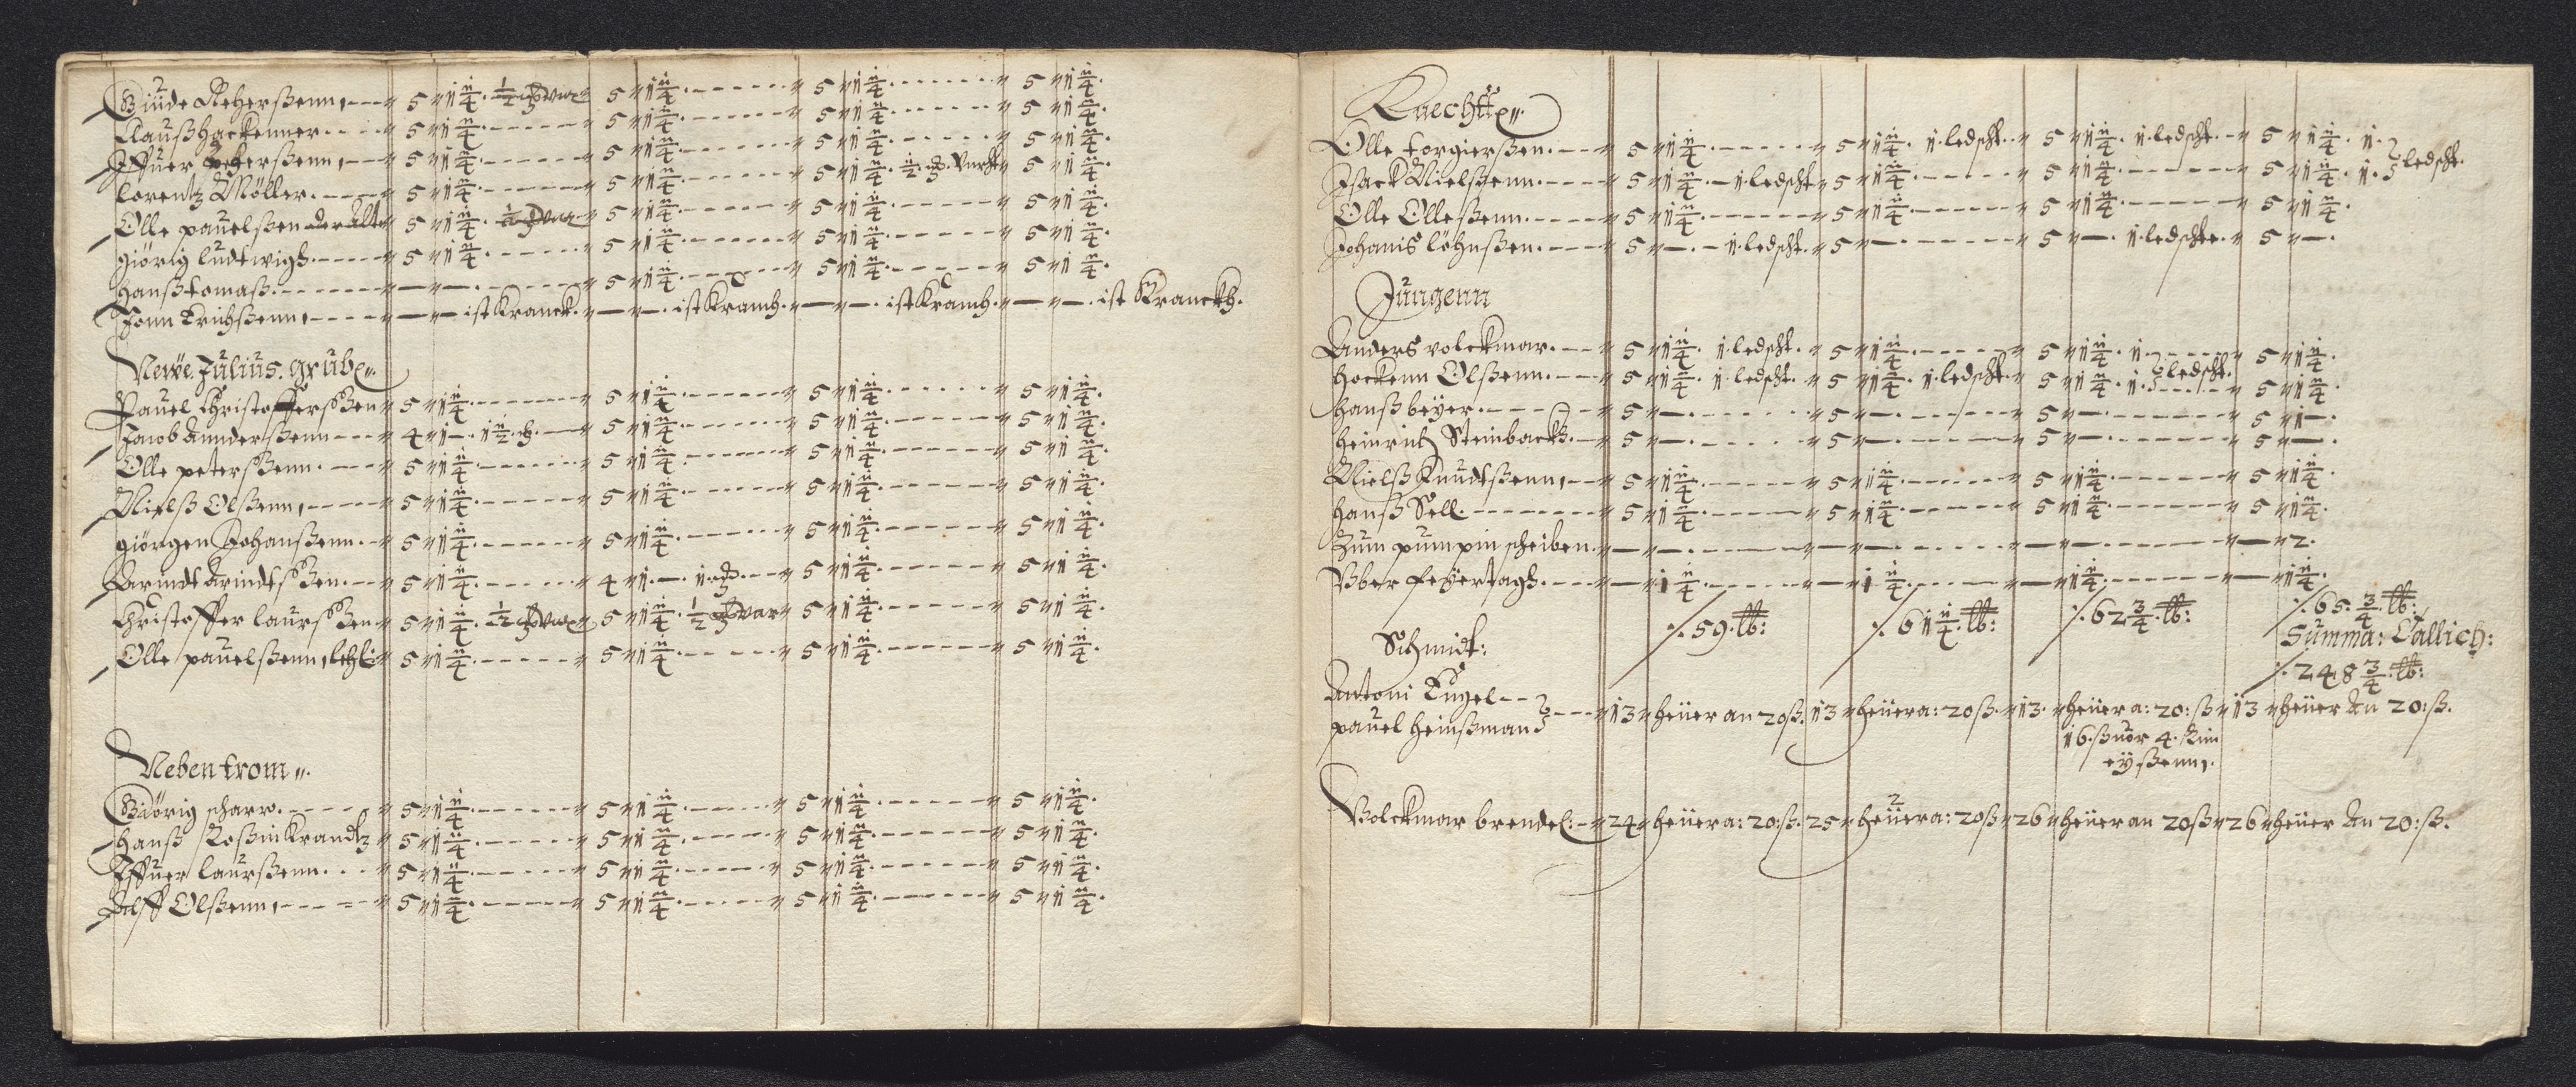 Gunde Reherßenn 5 1 1/4 5 1 1/4 5 1 1/4 5 1 1/4
Claußhackenner 5 1 1/4 5 1 1/4 5 1 1/4 5 1 1/4
Iffuer peterßenn 5 1 1/4 5 1 1/4 5 1 1/4 5 1 1/4
lorentz Möller 5 1 1/4 5 1 1/4 5 1 1/4 1/2 5 1 1/4
Olle pauelßen der alt 5 1 1/4 5 1 1/4 5 1 1/4 5 1 1/4
giörig ludtwigh 5 1 1/4 5 1 1/4 5 1 1/4 5 1 1/4
hanß tomaß — — 5 1 1/4 5 1 1/4 5 1 1/4
Jonn Erichßenn — — ist Kranck — — ist Kranch — — ist Kranch — — ist Kranckh
Newe Julius grube
Pauel Christofferßen 5 1 1/4 5 1 1/4 5 1 1/4 5 1 1/4
Jacob Annderßenn 4 1 — 1 1/2 5 1 1/4 5 1 1/4 5 1 1/4
Olle peterßenn 5 1 1/4 5 1 1/4 5 1 1/4 5 1 1/4
Nielß Olßenn 5 1 1/4 5 1 1/4 5 1 1/4 5 1 1/4
giörgen Johanßenn 5 1 1/4 5 1 1/4 5 1 1/4 5 1 1/4
Arindt Arindtßen 5 1 1/4 4 1 — 1 5 1 1/4 5 1 1/4
Christoffer laurßen 5 1 1/4 1/2 5 1 1/4 1/2 5 1 1/4 5 1 1/4
Olle pauelßenn 5 1 1/4 5 1 1/4 5 1 1/4 5 1 1/4
Neben trom
Giörig scharw 5 1 1/4 5 1 1/4 5 1 1/4 5 1 1/4
Hanß Roßinkrandtz 5 1 1/4 5 1 1/4 5 1 1/4 5 1 1/4
Iffuer laurßenn 5 1 1/4 5 1 1/4 5 1 1/4 5 1 1/4
Alff Olßenn 5 1 1/4 5 1 1/4 5 1 1/4 5 1 1/4
Knechtte
Olle torgierßen 5 1 1/4 5 1 1/4 1 ledscht 5 1 1/4 1 ledscht 5 1 1/4 1
Isack Nielßenn 5 1 1/4 1 ledscht 5 1 1/4 5 1 1/4 5 1 1/4 1 ledscht
Olle Olleßenn 5 1 1/4 5 1 1/4 5 1 1/4 5 1 1/4
Johanis löhnßen 5 — 1 ledscht 5 — 5 — 1 ledscht 5 —
Jungenn
Anders volckmar 5 1 1/4 1 ledscht 5 1 1/4 5 1 1/4 1 5 1 1/4
hockenn Olßenn 5 1 1/4 1 ledscht 5 1 1/4 1 ledscht 5 1 1/4 1 ledscht 5 1 1/4
Hanß beÿer 5 — 5 — 5 — 5 1 —
Heinrich Steinbackh 5 — 5 — 5 — 5 —
Nielß Knudtßenn 5 1 1/4 5 1 1/4 5 1 1/4 5 1 1/4
Hanß Sell 5 1 1/4 5 1 1/4 5 1 1/4 5 1 1/4
Zum pumpin scheiben — — — — — — — 2
Vber feÿertagh — 1 1/4 — 1 1/4 — 1 1/4 — 1 1/4
59 lb: 61 1/4 lb: 62 3/4 lb: 65 3/4 lb:
Summa: Tallich:
248 3/4 lb:
Schmidt:
Antoni Kugel
pauel heinßman 13 heüer an 20 ß 13 heüer a: 20 ß 13 heüer a: 20: ß 13 heüer an 20: ß
16 ß uor 4
eÿßenn
Volckmar brendel 24 heüer a: 20: ß 25 heüer a: 20 ß 26 heüer an 20 ß 26 heüer an 20: ß